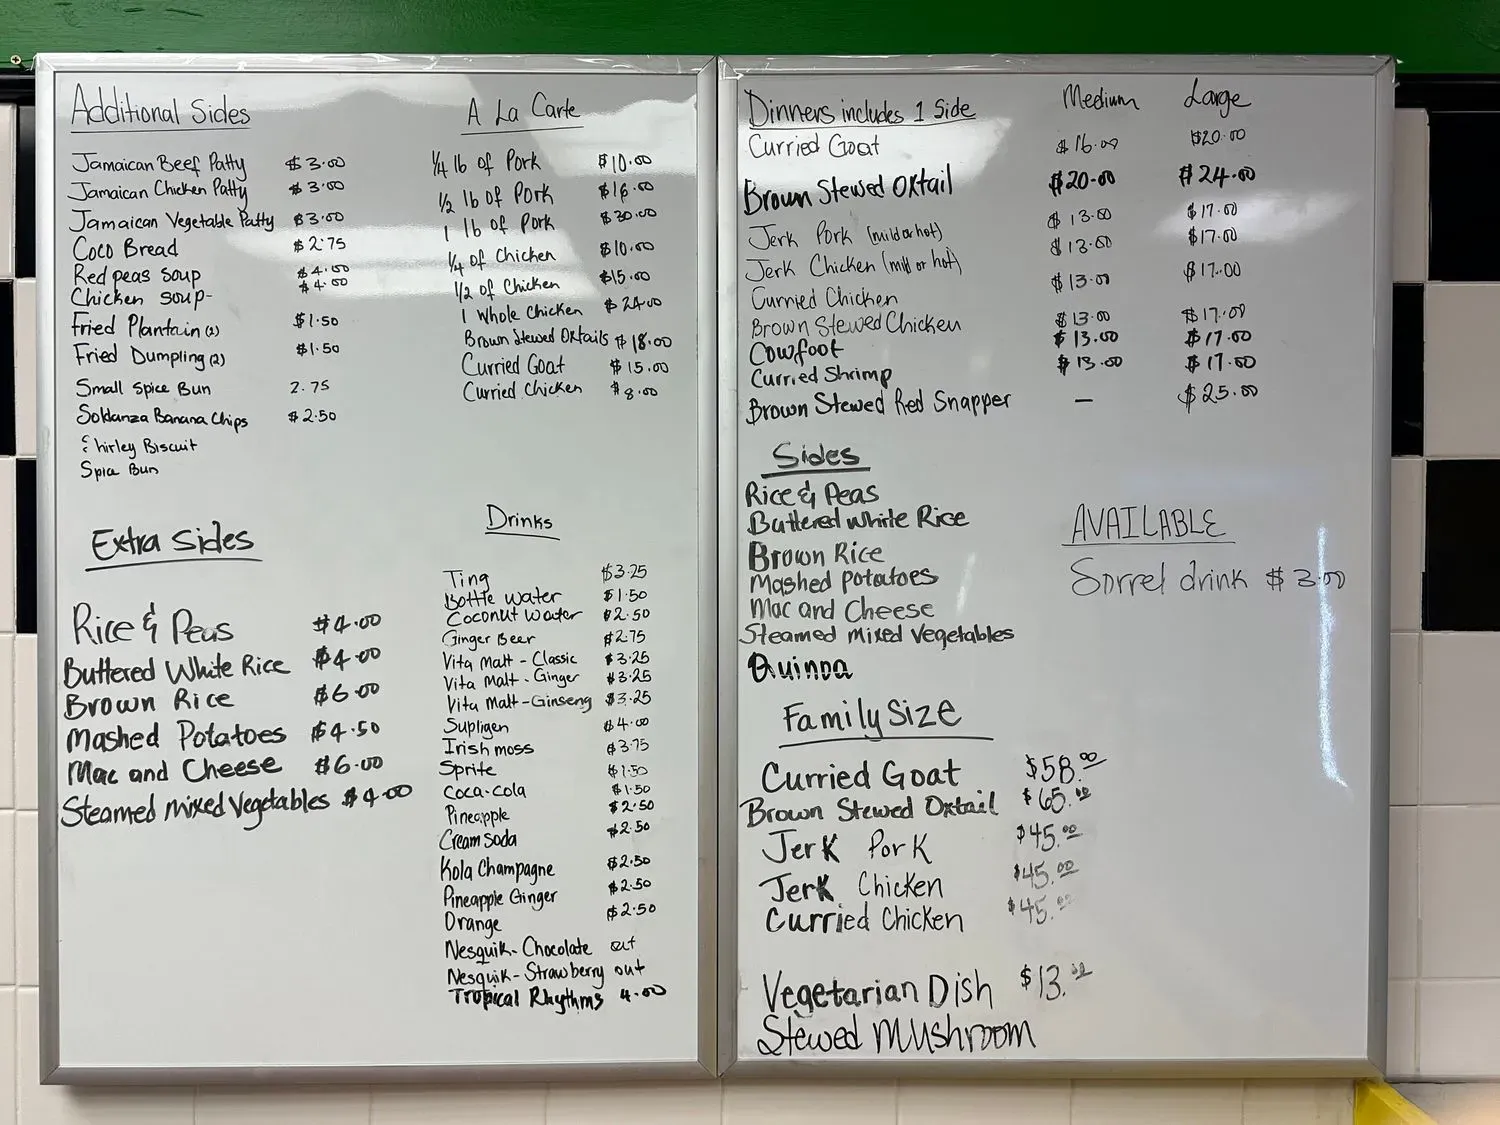 Additional Sides
Jamaican Beef Patty $3.00
Jamaican Chicken Patty $3.00
Jamaican Vegetable Patty $3.00
Coco Bread $2.75
Red peas soup $4.00
Chicken soup- $4.00
Fried Plantain (2) $1.50
Fried Dumpling (2) $1.50
Small Spice Bun 2.75
Soldanza Banana Chips $2.50
Shirley Biscuit
Spice Bun
Extra Sides
Rice & Peas $4.00
Buttered White Rice $4.00
Brown Rice $6.00
Mashed Potatoes $4.50
Mac and Cheese $6.00
Steamed mixed Vegetables $4.00
A La Carte
1/4 lb of Pork $10.00
1/2 lb of Pork $16.00
1 lb of Pork $30.00
1/4 of Chicken $10.00
1/2 of Chicken $15.00
1 Whole Chicken $24.00
Brown Stewed Oxtails $18.00
Curried Goat $15.00
Curried Chicken $8.00
Drinks
Ting $3.25
Bottle Water $1.50
Coconut Water $2.50
Ginger Beer $2.75
Vita Malt - Classic $3.25
Vita Malt - Ginger $3.25
Vita Malt - Ginseng $3.25
Supligen $4.00
Irish moss $3.75
Sprite $1.50
Coca-cola $1.50
Pineapple $2.50
Cream Soda $2.50
Kola Champagne $2.50
Pineapple Ginger $2.50
Orange $2.50
Nesquik - Chocolate out
Nesquik - Strawberry out
Tropical Rhythms 4.00
Dinners includes 1 Side Medium Large
Curried Goat $16.00 $20.00
Brown Stewed Oxtail $20.00 $24.00
Jerk Pork (mild or hot) $13.00 $17.00
Jerk Chicken (mild or hot) $13.00 $17.00
Curried Chicken $13.00 $17.00
Brown Stewed Chicken $13.00 $17.00
Cowfoot $13.00 $17.00
Curried Shrimp $13.00 $17.00
Brown Stewed Red Snapper — $25.00
Sides
Rice & Peas
Buttered White Rice
Brown Rice
Mashed Potatoes
Mac and Cheese
Steamed Mixed Vegetables
Quinoa
AVAILABLE
Sorrel drink $3.00
Family Size
Curried Goat $58.00
Brown Stewed Oxtail $65.00
Jerk Pork $45.00
Jerk Chicken $45.00
Curried Chicken $45.00
Vegetarian Dish $13.00
Stewed Mushroom